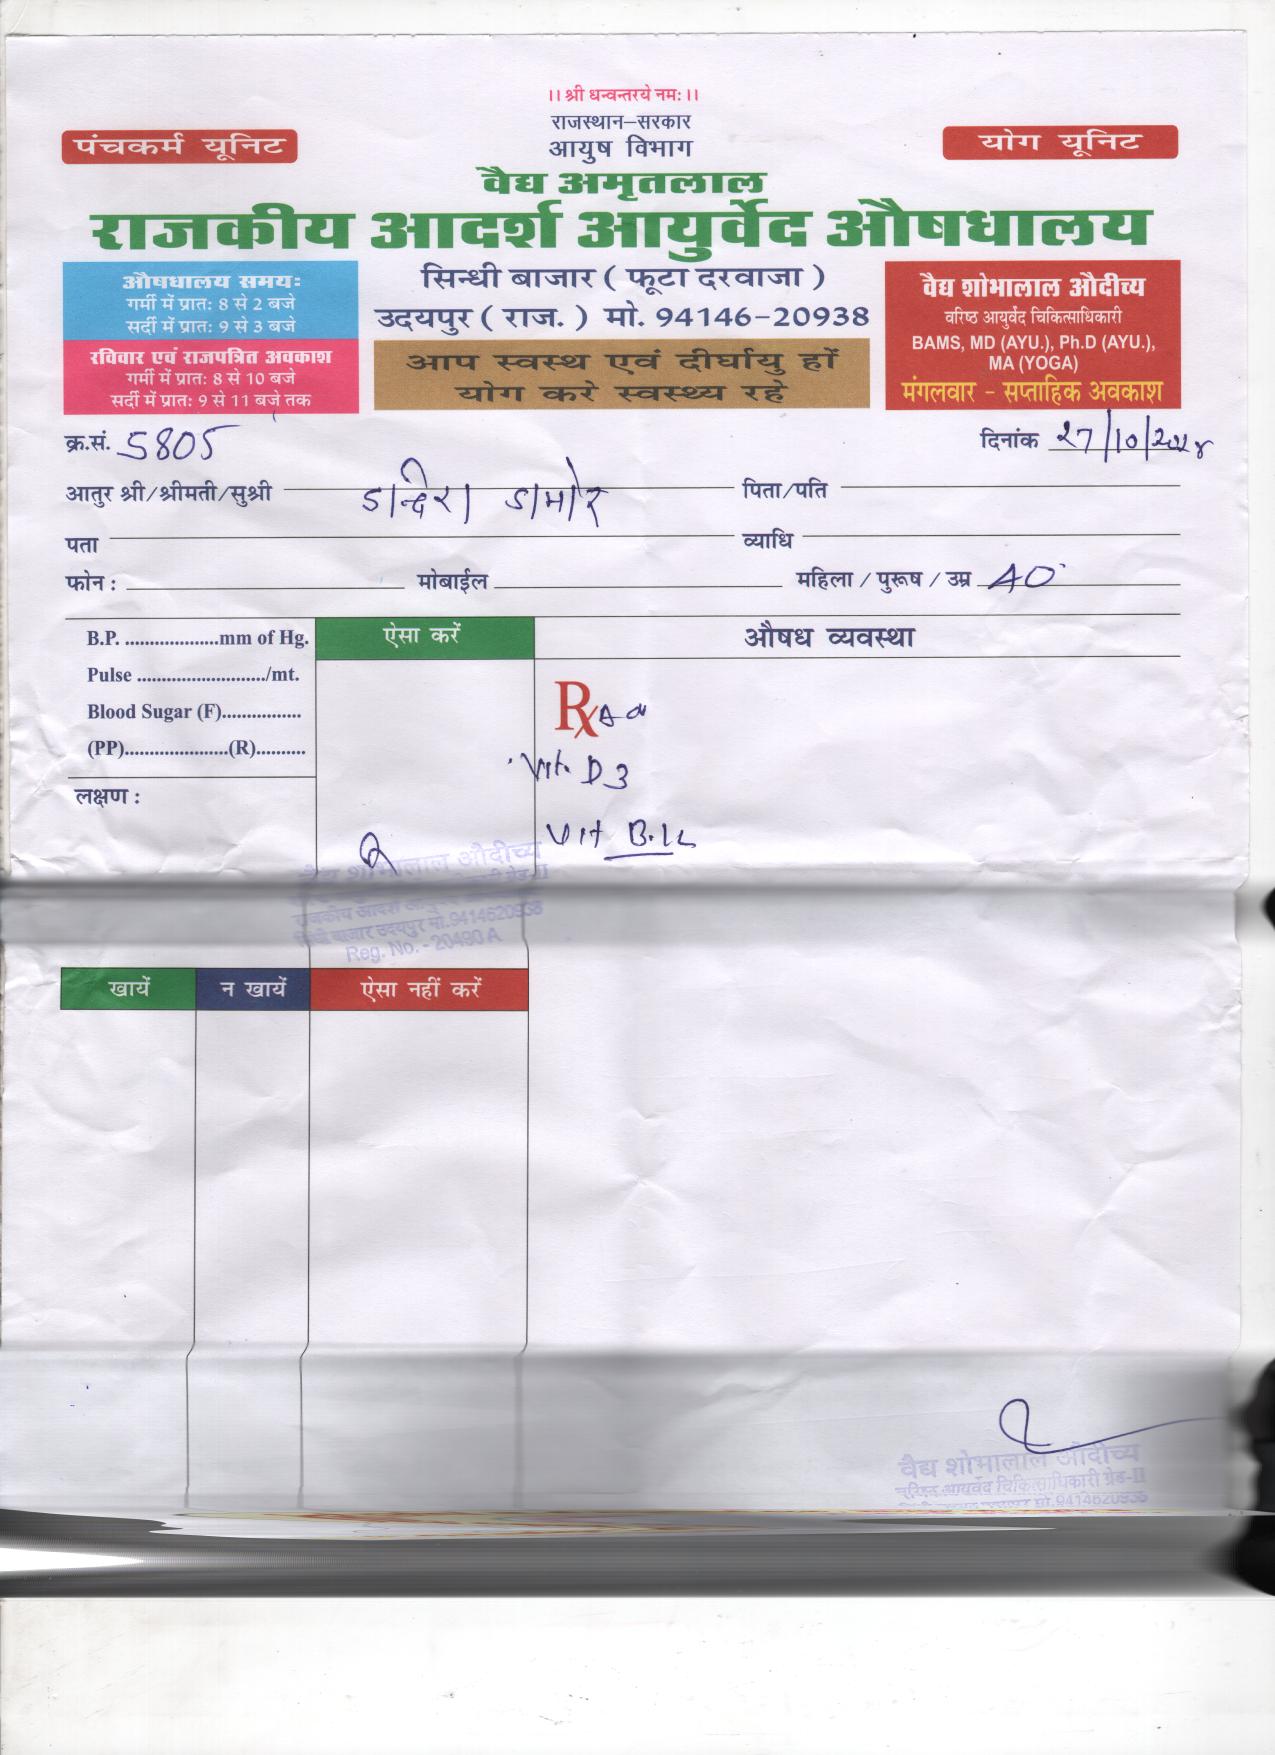 ।। श्री धन्वन्तरये नमः ।।
राजस्थान-सरकार
आयुष विभाग
पंचकर्म यूनिट
योग यूनिट
वैद्य अमृतलाल
राजकीय आदर्श आयुर्वेद औषधालय
सिन्धी बाजार ( फूटा दरवाजा )
उदयपुर ( राज. ) मो. 94146-20938
औषधालय समयः
गर्मी में प्रातः 8 से 2 बजे
सर्दी में प्रातः 9 से 3 बजे
रविवार एवं राजपत्रित अवकाश
गर्मी में प्रातः 8 से 10 बजे
सर्दी में प्रातः 9 से 11 बजे तक
आप स्वस्थ एवं दीर्घायु हों
योग करे स्वस्थ्य रहे
वैद्य शोभालाल औदीच्य
वरिष्ठ आयुर्वेद चिकित्साधिकारी
BAMS, MD (AYU.), Ph.D (AYU.),
MA (YOGA)
मंगलवार - सप्ताहिक अवकाश
क्र.सं. 5805 दिनांक 27/10/2024
आतुर श्री/श्रीमती/सुश्री इन्दिरा डामोर पिता/पति
पता व्याधि
फोन : मोबाईल महिला / पुरूष / उम्र 40
B.P. ...................mm of Hg.
Pulse ........................../mt.
Blood Sugar (F)................
(PP).....................(R)..........
लक्षण :
ऐसा करें
औषध व्यवस्था
Rx
Vit. D3
Vit B.12
वैद्य शोभालाल औदीच्य
राजकीय आदर्श
सिंधी बाजार उदयपुर मो.9414620938
Reg. No. - 20490 A
खायें न खायें ऐसा नहीं करें
वैद्य शोभालाल औदीच्य
वरिष्ठ आयुर्वेद चिकित्साधिकारी ग्रेड-II
मो.9414620938